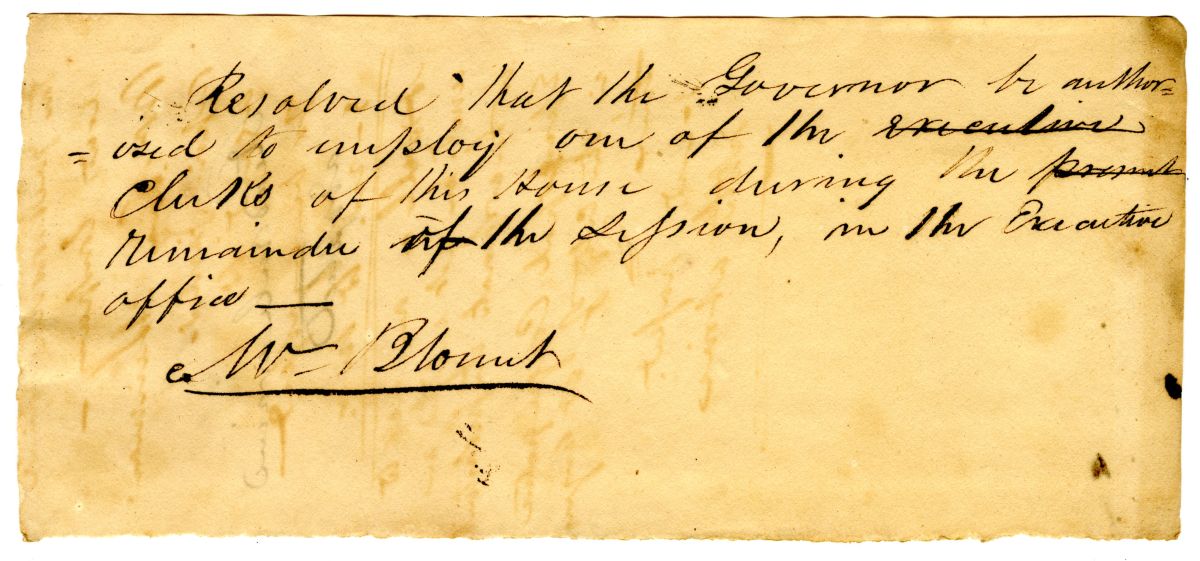 Resolved that the Governor be author=
=ised to employ one of the ~~executive~~
Clerks of this House during the ~~present~~
remainder of the Session, in the Executive
office —
Wm Blount